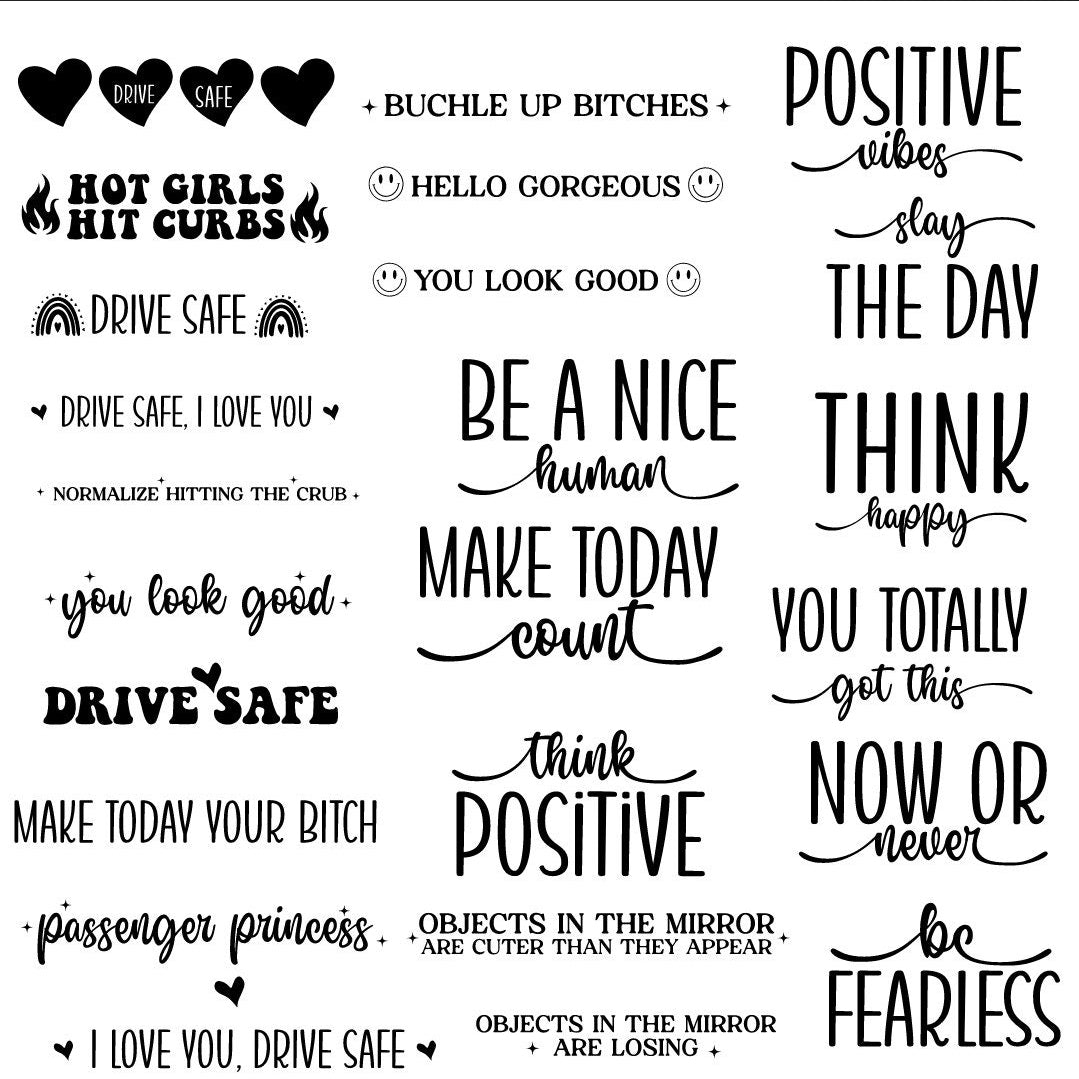 DRIVE SAFE
HOT GIRLS
HIT CURBS
DRIVE SAFE
DRIVE SAFE, I LOVE YOU
NORMALIZE HITTING THE CRUB
you look good
DRIVE SAFE
MAKE TODAY YOUR BITCH
passenger princess
I LOVE YOU, DRIVE SAFE
BUCHLE UP BITCHES
HELLO GORGEOUS
YOU LOOK GOOD
BE A NICE
human
MAKE TODAY
count
think
POSITIVE
OBJECTS IN THE MIRROR
ARE CUTER THAN THEY APPEAR
OBJECTS IN THE MIRROR
ARE LOSING
POSITIVE
vibes
slay
THE DAY
THINK
happy
YOU TOTALLY
got this
NOW OR
never
be
FEARLESS